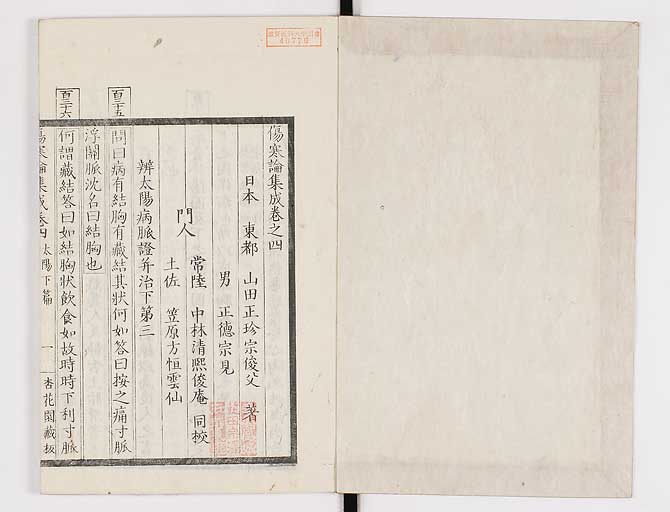 傷寒論集成卷之四
日本 東都 山田正珍宗俊父 著
男 正德宗見
門人 常陸 中林清熙俊庵 同校
土佐 笠原方恒雲仙
辨太陽病脈證并治下第三
百三十五
問曰病有結胸有藏結其狀何如答曰按之痛寸脈
浮關脈沈名曰結胸也
百三十六
何謂藏結答曰如結胸狀飲食如故時時下利寸脈
傷寒論集成 卷四 太陽下篇 一 杏花園藏板
46770